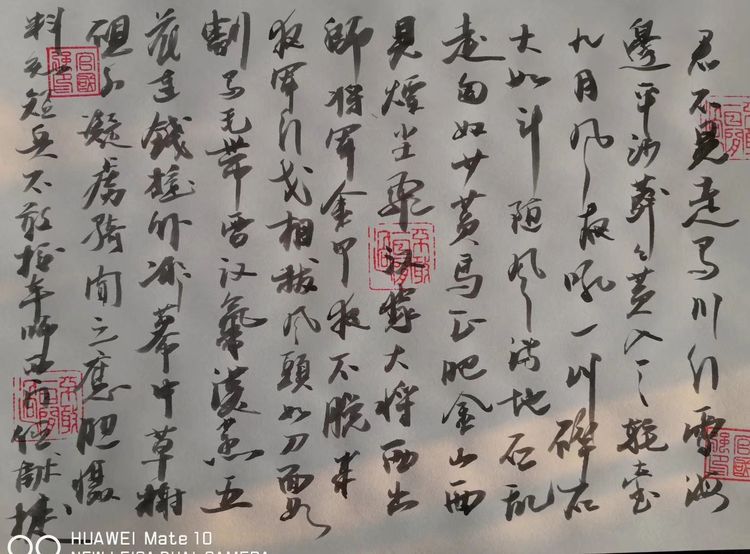 君不見走馬川行雪海
邊平沙莽々黄入天輪臺
九月風夜吼一川碎石
大如斗隨風滿地石亂
走匈奴草黄馬正肥金山西
見煙塵飛漢家大將西出
師將軍金甲夜不脱半
夜軍行戈相撥風頭如刀面如
割馬毛帶雪汗氣蒸五
花連錢旋作冰幕中草檄
硯水凝虜騎聞之應膽懾
料知短兵不敢接車師西門佇獻捷
HUAWEI Mate 10
NEW LEICA DUAL CAMERA